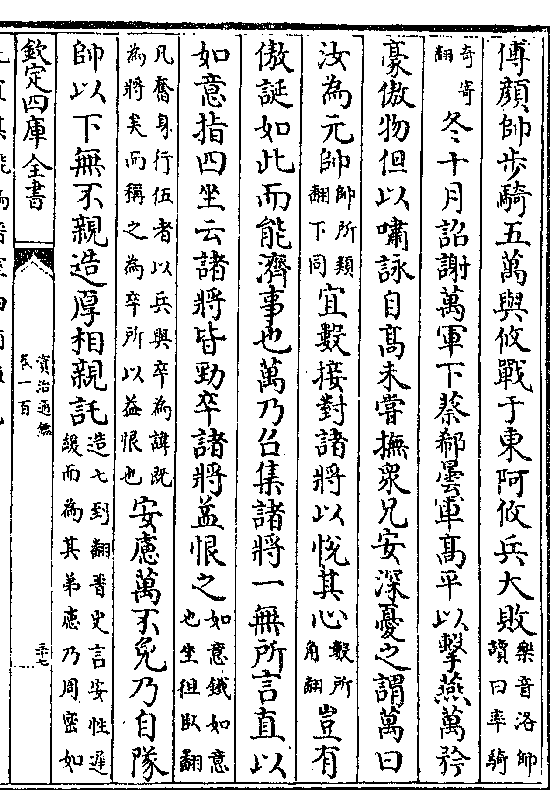 傅顔帥歩騎五萬與攸戰于東阿攸兵大敗樂音洛帥讀曰率騎
奇寄翻冬十月詔謝萬軍下蔡郗曇軍高平以擊燕萬矜
豪傲物但以嘯詠自高未嘗撫衆兄安深憂之謂萬曰
汝為元帥帥所類翻下同宜數接對諸將以悅其心數所角翻豈有
傲誕如此而能濟事也萬乃召集諸將一無所言直以
如意指四坐云諸將皆勁卒諸將益恨之如意鐵如意也坐徂臥翻
凡奮身行伍者以兵與卒為諱既為將矣而稱之為卒所以益恨也安慮萬不免乃自隊
帥以下無不親造厚相親託造七到翻晉史言安性遲緩而為其弟慮乃周密如
欽定四庫全書
資治通鑑
卷一百
三十七